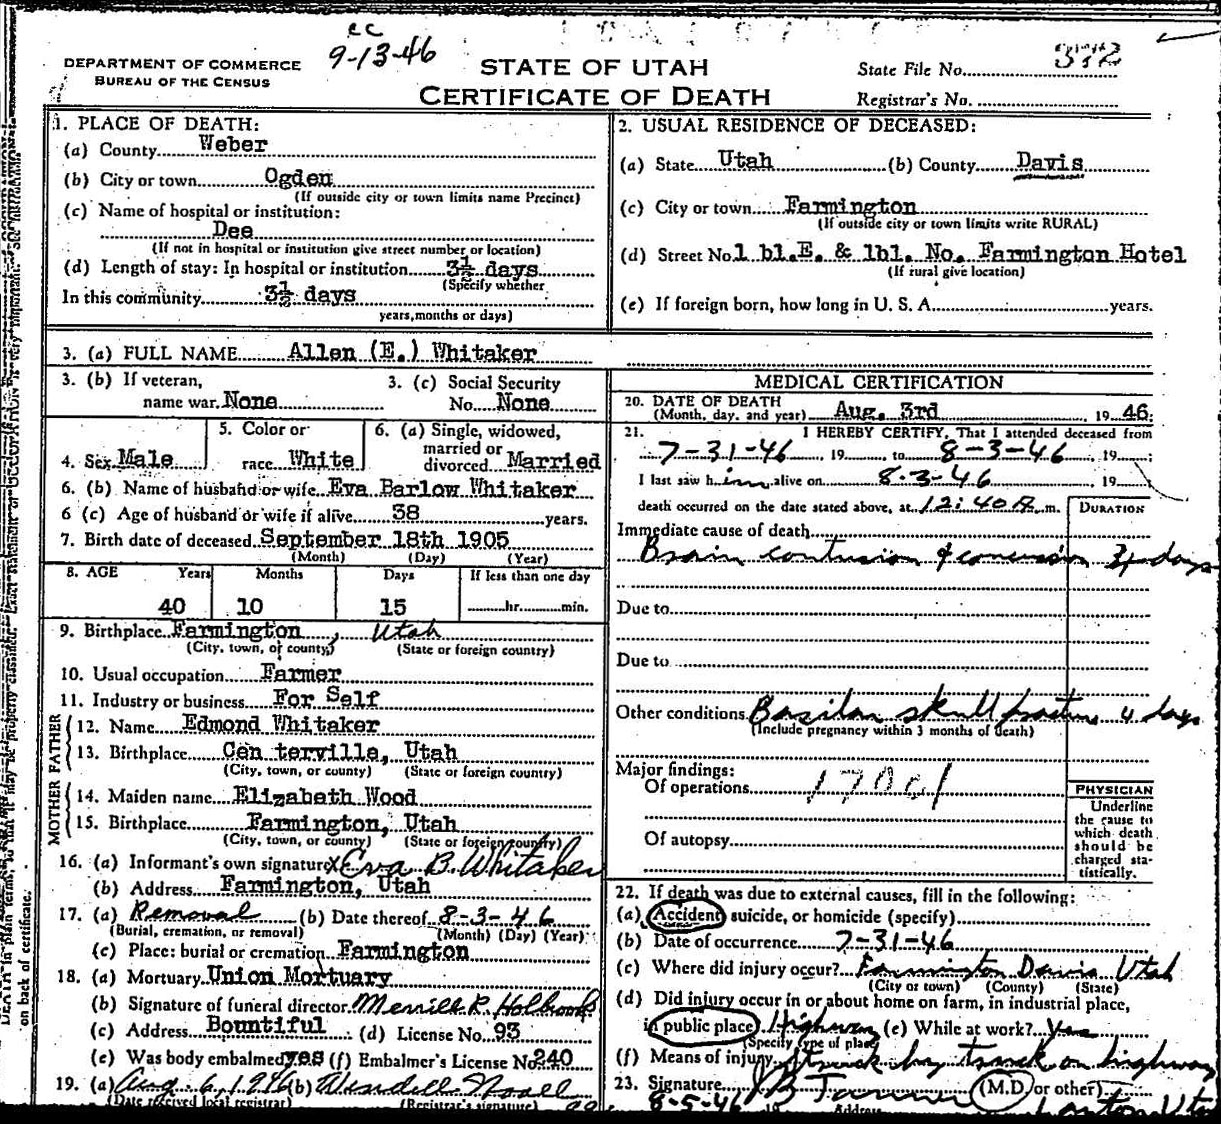 cc
9-13-46
DEPARTMENT OF COMMERCE
BUREAU OF THE CENSUS
STATE OF UTAH
CERTIFICATE OF DEATH
State File No.
Registrar's No.
1. PLACE OF DEATH:
(a) County Weber
(b) City or town Ogden
(If outside city or town limits name Precinct)
(c) Name of hospital or institution:
Dee
(If not in hospital or institution give street number or location)
(d) Length of stay: In hospital or institution 3½ days
(Specify whether
In this community 3½ days
years, months or days)
2. USUAL RESIDENCE OF DECEASED:
(a) State Utah (b) County Davis
(c) City or town Farmington
(If outside city or town limits write RURAL)
(d) Street No. 1 bl.E. & 1bl. No. Farmington Hotel
(If rural give location)
(e) If foreign born, how long in U. S. A. years.
3. (a) FULL NAME Allen (E.) Whitaker
3. (b) If veteran,
name war. None
3. (c) Social Security
No. None
4. Sex Male
5. Color or
race White
6. (a) Single, widowed,
married or
divorced Married
6. (b) Name of husband or wife Eva Barlow Whitaker
6 (c) Age of husband or wife if alive 38 years.
7. Birth date of deceased September 18th 1905
(Month) (Day) (Year)
8. AGE Years Months Days If less than one day
40 10 15 hr. min.
9. Birthplace Farmington, Utah
(City, town, or county) (State or foreign country)
10. Usual occupation Farmer
11. Industry or business For Self
FATHER
12. Name Edmond Whitaker
13. Birthplace Cen terville, Utah
(City, town, or county) (State or foreign country)
MOTHER
14. Maiden name Elizabeth Wood
15. Birthplace Farmington, Utah
(City, town, or county) (State or foreign country)
16. (a) Informant's own signature X Eva B. Whitaker
(b) Address Farmington, Utah
17. (a) Removal (b) Date thereof 8-3-46
(Burial, cremation, or removal) (Month) (Day) (Year)
(c) Place: burial or cremation Farmington
18. (a) Mortuary Union Mortuary
(b) Signature of funeral director Merrill R. Holbrook
(c) Address Bountiful (d) License No. 93
(e) Was body embalmed yes (f) Embalmer's License No. 240
19. (a) Aug. 6, 1946 (b) Wendell Noall
(Date received local registrar) (Registrar's signature)
MEDICAL CERTIFICATION
20. DATE OF DEATH
(Month, day, and year) Aug. 3rd, 1946
21. I HEREBY CERTIFY, That I attended deceased from
7-31-46, 19 to 8-3-46, 19 ;
I last saw him alive on 8-3-46, 19
death occurred on the date stated above, at 12:40A m.
DURATION
Immediate cause of death
Brain contusion & concussion days
Due to
Due to
Other conditions Basilar skull fracture 4 days
(Include pregnancy within 3 months of death)
Major findings:
Of operations
Of autopsy
PHYSICIAN
Underline
the cause to
which death
should be
charged sta-
tistically.
22. If death was due to external causes, fill in the following:
(a) Accident, suicide, or homicide (specify)
(b) Date of occurrence 7-31-46
(c) Where did injury occur? Farmington Davis Utah
(City or town) (County) (State)
(d) Did injury occur in or about home on farm, in industrial place,
in public place Highway (e) While at work? Yes
(Specify type of place)
(f) Means of injury struck by truck on highway
23. Signature (M.D. or other)
8-5-46 Address
on back of certificate.